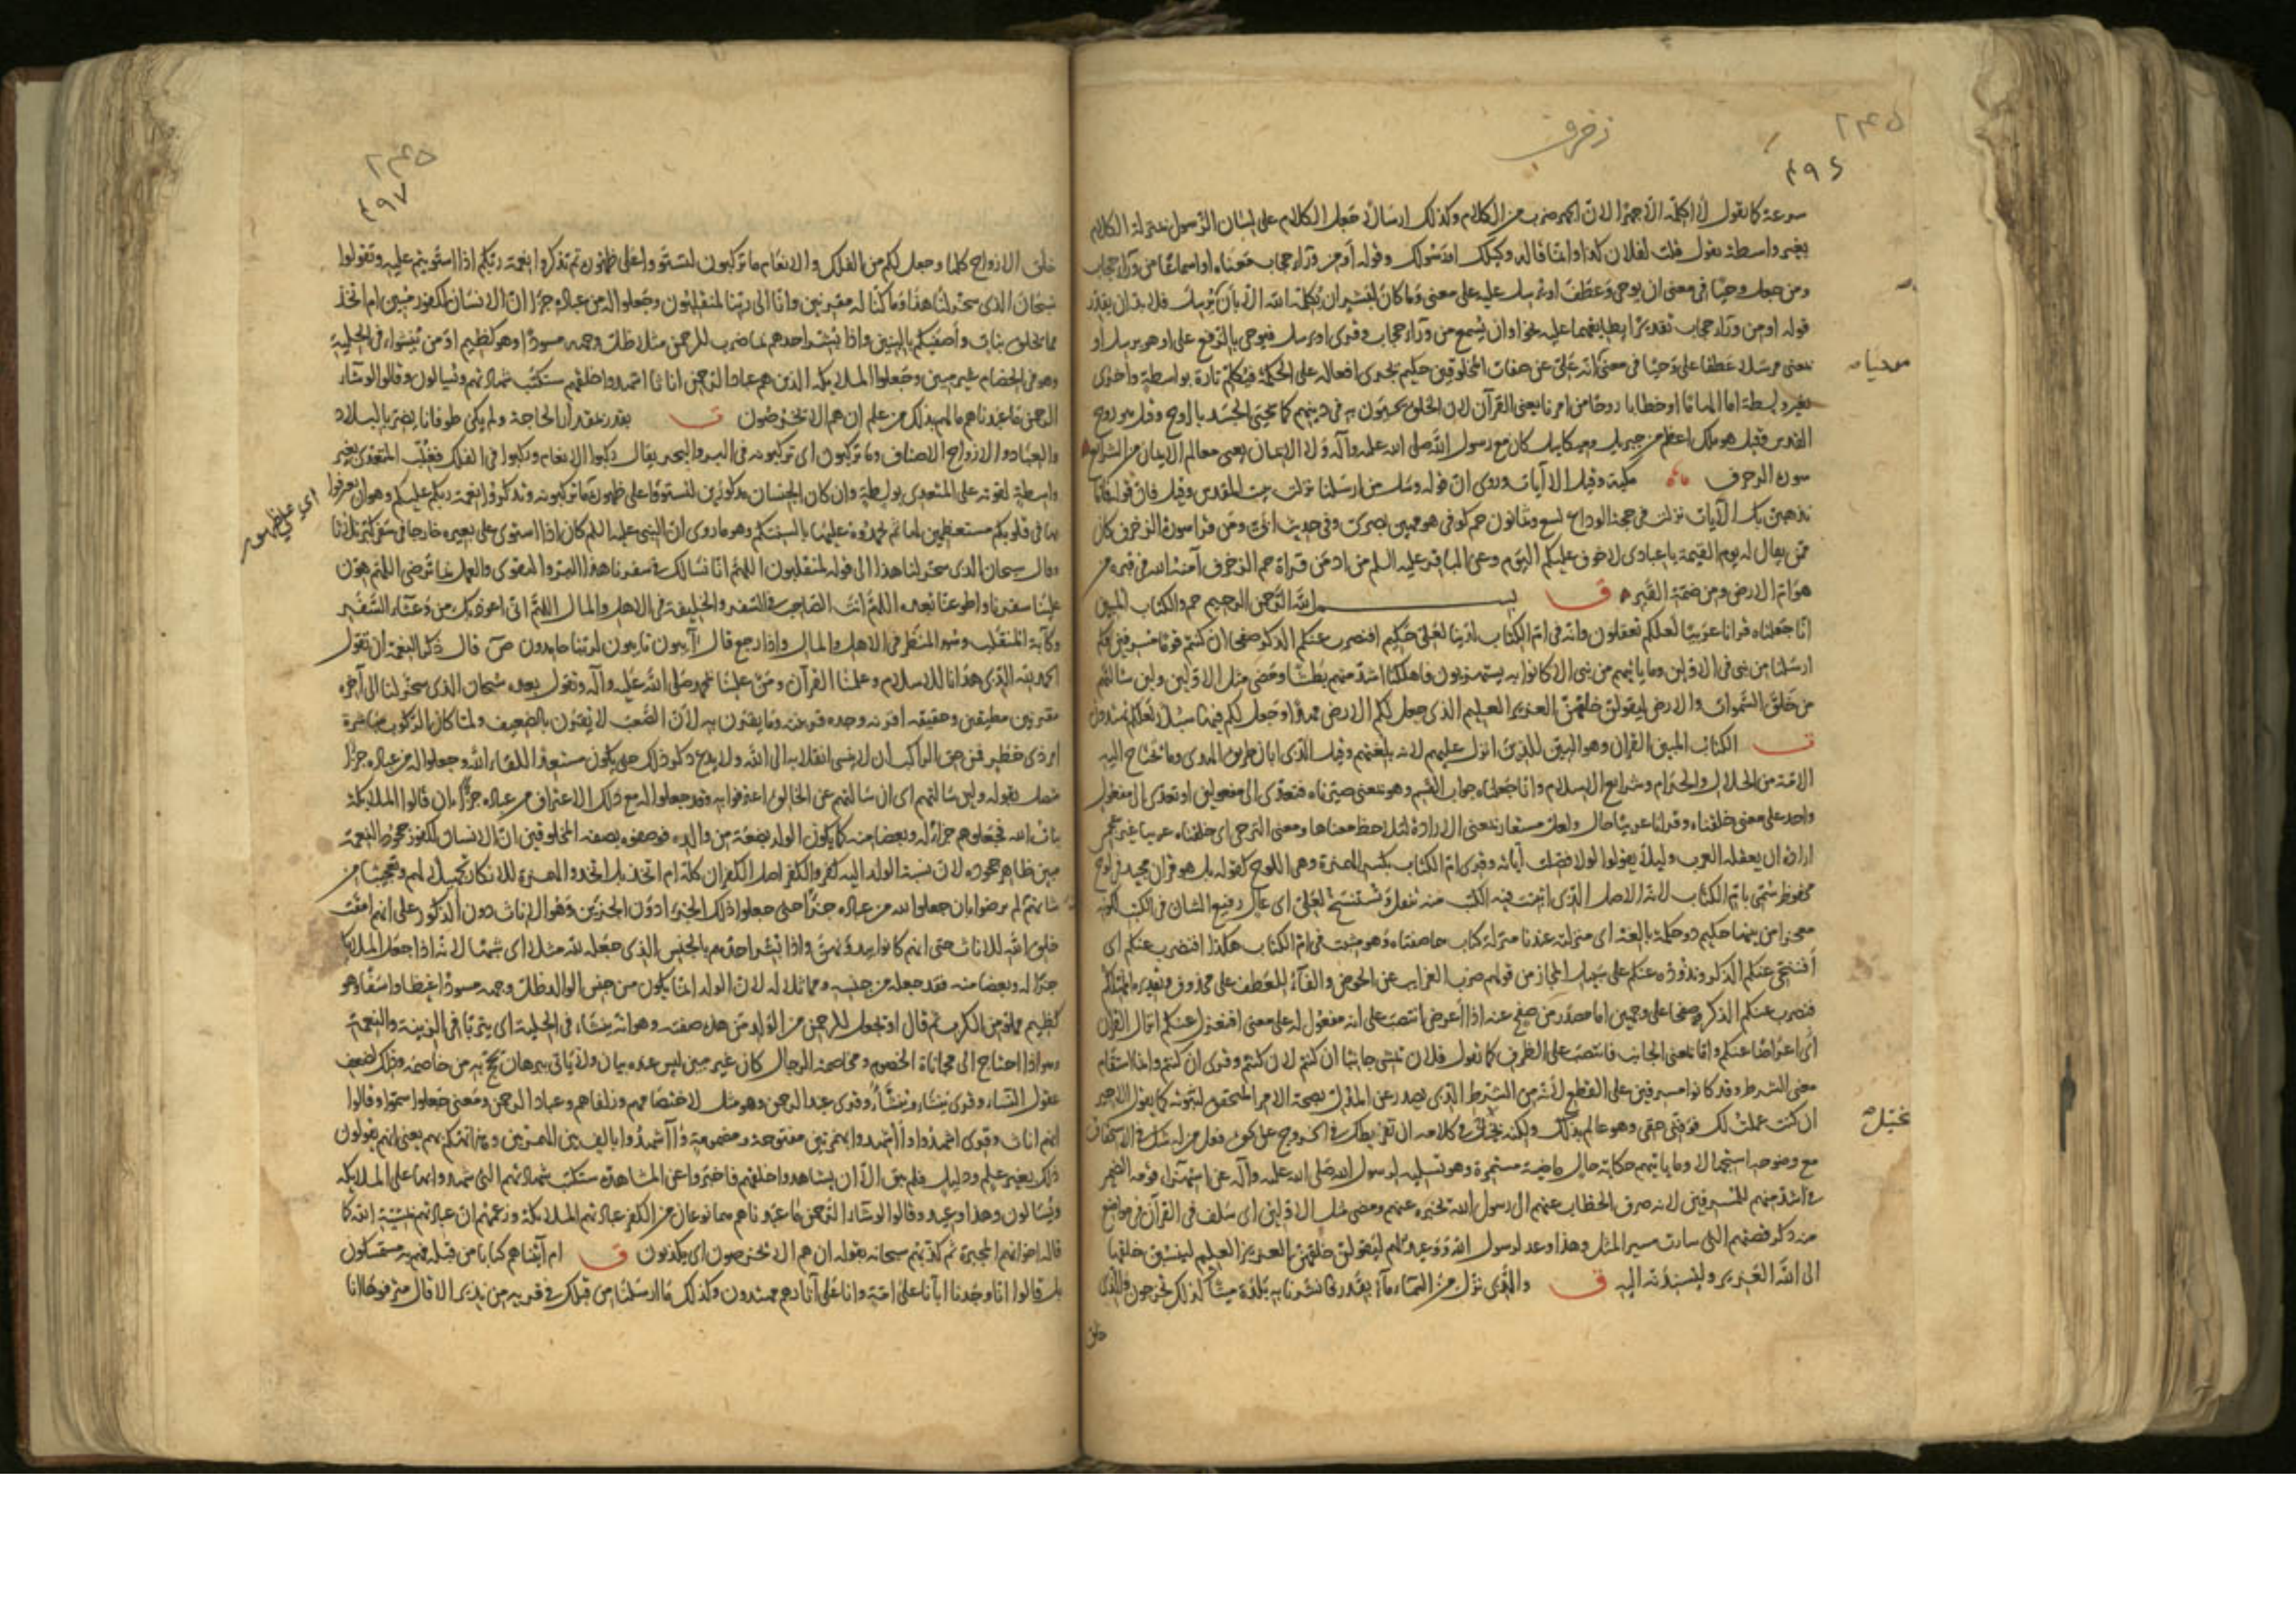 زخرف
۲۴۵
۴۹۶
بغير واسطة تقول قلت لفلان كذا وانما قاله وكيلك او رسولك وقوله او من وراء حجاب معناه او اسماعا من وراء حجاب
ومن جعل وحيا في معنى ان يوحي وعطف او يرسل عليه على معنى وما كان لبشر ان يكلمه الله الا بان يوحي او بان يرسل فلا بد ان يقدر
قوله او من وراء حجاب تقديرا يطابقهما عليه نحو او ان يسمع من وراء حجاب وقرئ او يرسل فيوحي بالرفع على او هو يرسل او
بمعنى مرسلا عطفا على وحيا في معنى انه علي عن صفات المخلوقين حكيم يجري افعاله على الحكمة فيكلم تارة بواسطة واخرى
بغير واسطة اما الهاما او خطابا روحا من امرنا يعني القرآن لان الخلق يحيون به في دينهم كما يحيى الجسد بالروح وقيل هو روح
القدس وقيل هو ملك اعظم من جبريل وميكائيل كان مع رسول الله صلى الله عليه وآله ولا الايمان يعني معالم الايمان من الشرائع
سورة الزخرف مكية وقيل الا آيات وروي ان قوله وسئل من ارسلنا نزلت ببيت المقدس وقيل فاما
نذهبن بك الآيات نزلت في حجة الوداع تسع وثمانون حم كوفي هو مهين بصري وفي حديث ابي ومن قرأ سورة الزخرف كان
ممن يقال له يوم القيمة يا عبادي لا خوف عليكم اليوم وعن الباقر عليه السلم من ادمن قراءة حم الزخرف آمنه الله في قبره من
هوام الارض ومن ضمة القبر ق بسم الله الرحمن الرحيم حم والكتاب المبين
انا جعلناه قرآنا عربيا لعلكم تعقلون وانه في ام الكتاب لدينا لعلي حكيم افنضرب عنكم الذكر صفحا ان كنتم قوما مسرفين وكم
ارسلنا من نبي في الاولين وما ياتيهم من نبي الا كانوا به يستهزؤن فاهلكنا اشد منهم بطشا ومضى مثل الاولين ولئن سالتهم
من خلق السموات والارض ليقولن خلقهن العزيز العليم الذي جعل لكم الارض مهدا وجعل لكم فيها سبلا لعلكم تهتدون
ق الكتاب المبين القرآن وهو البين للذين انزل عليهم لانه بلغتهم وقيل الذي ابان طريق الهدى وما تحتاج اليه
الامة من الحلال والحرام وشرايع الاسلام وانا جعلناه جواب القسم وهو بمعنى صيرناه فتعدى الى مفعولين او تعدى الى مفعول
واحد على معنى خلقناه وقرآنا عربيا حال ولعل مستعار بمعنى الارادة لتلاحظ معناها ومعنى الترجي اي خلقناه عربيا غير عجمي
ارادة ان يعقله العرب وليلا يقولوا لولا فصلت آياته وقرئ ام الكتاب بكسر الهمزة وهي اللوح كقوله بل هو قرآن مجيد في لوح
محفوظ سمي بام الكتاب لانه الاصل الذي اثبتت فيه الكتب منه تنقل وتستنسخ لعلي اي عال رفيع الشان في الكتب لكونه
معجزا من بينها حكيم ذو حكمة بالغة اي منزلته عندنا منزلة كتاب هما صفتاه وهو مثبت في ام الكتاب هكذا افنضرب عنكم اي
أفننحي عنكم الذكر ونذوده عنكم على سبيل المجاز من قولهم ضرب الغرايب عن الحوض والفاء للعطف على محذوف وتقديره انهملكم
فنضرب عنكم الذكر وصفحا على وجهين اما مصدر من صفح عنه اذا أعرض انتصب على انه مفعول له على معنى افنعزل عنكم انزال القرآن
اي اعراضا عنكم واما بمعنى الجانب فانتصب على الظرف كما تقول فلان تمشي جانبا ان كنتم لان كنتم وقرئ ان كنتم وانما استقام
معنى الشرط وقد كانوا مسرفين على القطع لأنه من الشرط الذي يصدر عن المدل بصحة الامر المتحقق لثبوته كما يقول الاجير
ان كنت عملت لك فوفني حقي وهو عالم بذلك ولكنه يخيل في كلامه ان تفريطك في الخروج عن حق فعل من له شك في الاستحقاق
مع وضوحه استجهالا وما ياتيهم حكاية حال ماضية مستمرة وهو تسلية لرسول الله صلى الله عليه وآله عن استهزاء قومه الضمير
في اشد منهم للمسرفين لانه صرف الخطاب عنهم الى رسول الله يخبره عنهم ومضى مثل الاولين اي سلف في القرآن في مواضع
منه ذكر قصتهم التي سارت مسير المثل وهذا وعد لرسول الله ووعيد لهم ليقولن خلقهن العزيز العليم لينسبن خلقها
الى الله العزيز وليسندنه اليه ق والذي نزل من السماء ماء بقدر فانشرنا به بلدة ميتا كذلك تخرجون والذي
خلق
۲۴۵
۴۹۷
خلق الازواج كلها وجعل لكم من الفلك والانعام ما تركبون لتستووا على ظهوره ثم تذكروا نعمة ربكم اذا استويتم عليه وتقولوا
سبحان الذي سخر لنا هذا وما كنا له مقرنين وانا الى ربنا لمنقلبون وجعلوا له من عباده جزءا ان الانسان لكفور مبين ام اتخذ
مما يخلق بنات وأصفيكم بالبنين واذا بشر احدهم بما ضرب للرحمن مثلا ظل وجهه مسودا وهو كظيم او من ينشؤا في الحلية
وهو في الخصام غير مبين وجعلوا الملايكة الذين هم عباد الرحمن اناثا اشهدوا خلقهم ستكتب شهادتهم ويسالون وقالوا لو شاء
الرحمن ما عبدناهم ما لهم بذلك من علم ان هم الا يخرصون ق بقدر بمقدار الحاجة ولم يكن طوفانا يضر بالبلاد
والعباد والازواج الاصناف وما تركبون اي تركبونه في البر والبحر يقال ركبوا الانعام وركبوا في الفلك فغلب المتعدي بغير
واسطة لقوته على المتعدي بواسطة وان كان الجنسان مذكورين لتستووا على ظهور ما تركبونه وتذكروا نعمة ربكم عليكم وهو ان تعرفوا
بها في قلوبكم مستعظمين لها ثم تحمدوه عليها بالسنتكم وهو ما روي ان النبي عليه السلم كان اذا استوى على بعيره خارجا في سفر كبر ثلاثا
وقال سبحان الذي سخر لنا هذا الى قوله لمنقلبون اللهم انا نسالك في سفرنا هذا البر والتقوى والعمل بما ترضى اللهم هون
علينا سفرنا واطو عنا بعده اللهم انت الصاحب في السفر والخليفة في الاهل والمال اللهم اني اعوذ بك من وعثاء السفر
وكآبة المنقلب وسوء المنظر في الاهل والمال واذا رجع قال آيبون تايبون لربنا حامدون ص قال ذكر النعمة ان تقول
الحمد لله الذي هدانا للاسلام وعلمنا القرآن ومن علينا بمحمد صلى الله عليه وآله وتقول بعده سبحان الذي سخر لنا الى آخره
مقرنين مطيقين وحقيقه اقرنه وجده قرينته وما يقترن به لأن الصعب لا يقترن بالضعيف ولما كان الركوب مباشرة
امر ذي خطر فمن حق الراكب ان لا ينسى انقلابه الى الله ولا يدع ذكر ذلك حتى يكون مستعدا للقاء الله وجعلوا له من عباده جزءا
متصل بقوله ولئن سالتهم اي ان سالتهم عن الخالق اعترفوا به وقد جعلوا له مع ذلك الاعتراف من عباده جزءا بان قالوا الملايكة
بنات الله فجعلوهم جزءا له وبعضا منه كما يكون الولد بضعة من والده فوصفوه بصفة المخلوقين ان الانسان لكفور جحود للنعمة
مبين ظاهر جحوده لان نسبة الولد اليه كفر والكفر اصل الكفران كله ام اتخذ بل اتخذ والهمزة للانكار تجهيلا لهم وتعجيبا من
شانهم لم يرضوا بان جعلوا لله من عباده جزءا حتى جعلوا ذلك الجزء ادون الجزءين وهو الاناث دون الذكور على انهم امقت
خلق الله للاناث حتى انهم كانوا يئدونهن واذا بشر احدهم بالجنس الذي جعله لله مثلا اي شبها لانه اذا جعل الملايكة
جزءا له وبعضا منه فقد جعله من جنسه ومماثلا له لان الولد انما يكون من جنس الوالد ظل وجهه مسودا غيظا واسفا وهو
كظيم مملو من الكرب ثم قال او يجعل للرحمن من الولد من هذه صفته وهو انه ينشأ في الحلية اي يتربا في الزينة والنعمة
وهو اذا احتاج الى مجاثاة الخصوم ومخاصمة الرجال كان غير مبين ليس عنده بيان ولا ياتي ببرهان يحتج به من خاصمه وذلك لضعف
عقول النساء وقرئ ينشاء وينشأ وقرئ عند الرحمن وهو مثل لاختصاصهم وزلفاهم وعباد الرحمن ومعنى جعلوا سموا وقالوا
انهم اناث وقرئ اشهدوا وأأشهدوا بهمزتين مفتوحة ومضمومة وآأشهدوا بالف بين الهمزتين وهذا تهكم بهم يعني انهم يقولون
ذلك بغير علم ودليل فلم يبق الا ان يشاهدوا خلقهم فاخبروا عن المشاهدة ستكتب شهادتهم التي شهدوا بها على الملايكة
ويسالون وهذا وعيد وقالوا لو شاء الرحمن ما عبدناهم هما نوعان من الكفر عبادتهم الملائكة وزعمهم ان عبادتهم بمشية الله كما
قاله اخوانهم المجبرة ثم كذبهم سبحانه بقوله ان هم الا يخرصون اي يكذبون ق ام آتيناهم كتابا من قبله فهم به مستمسكون
بل قالوا انا وجدنا آبآنا على امة وانا على آثارهم مهتدون وكذلك ما ارسلنا من قبلك في قرية من نذير الا قال مترفوها انا